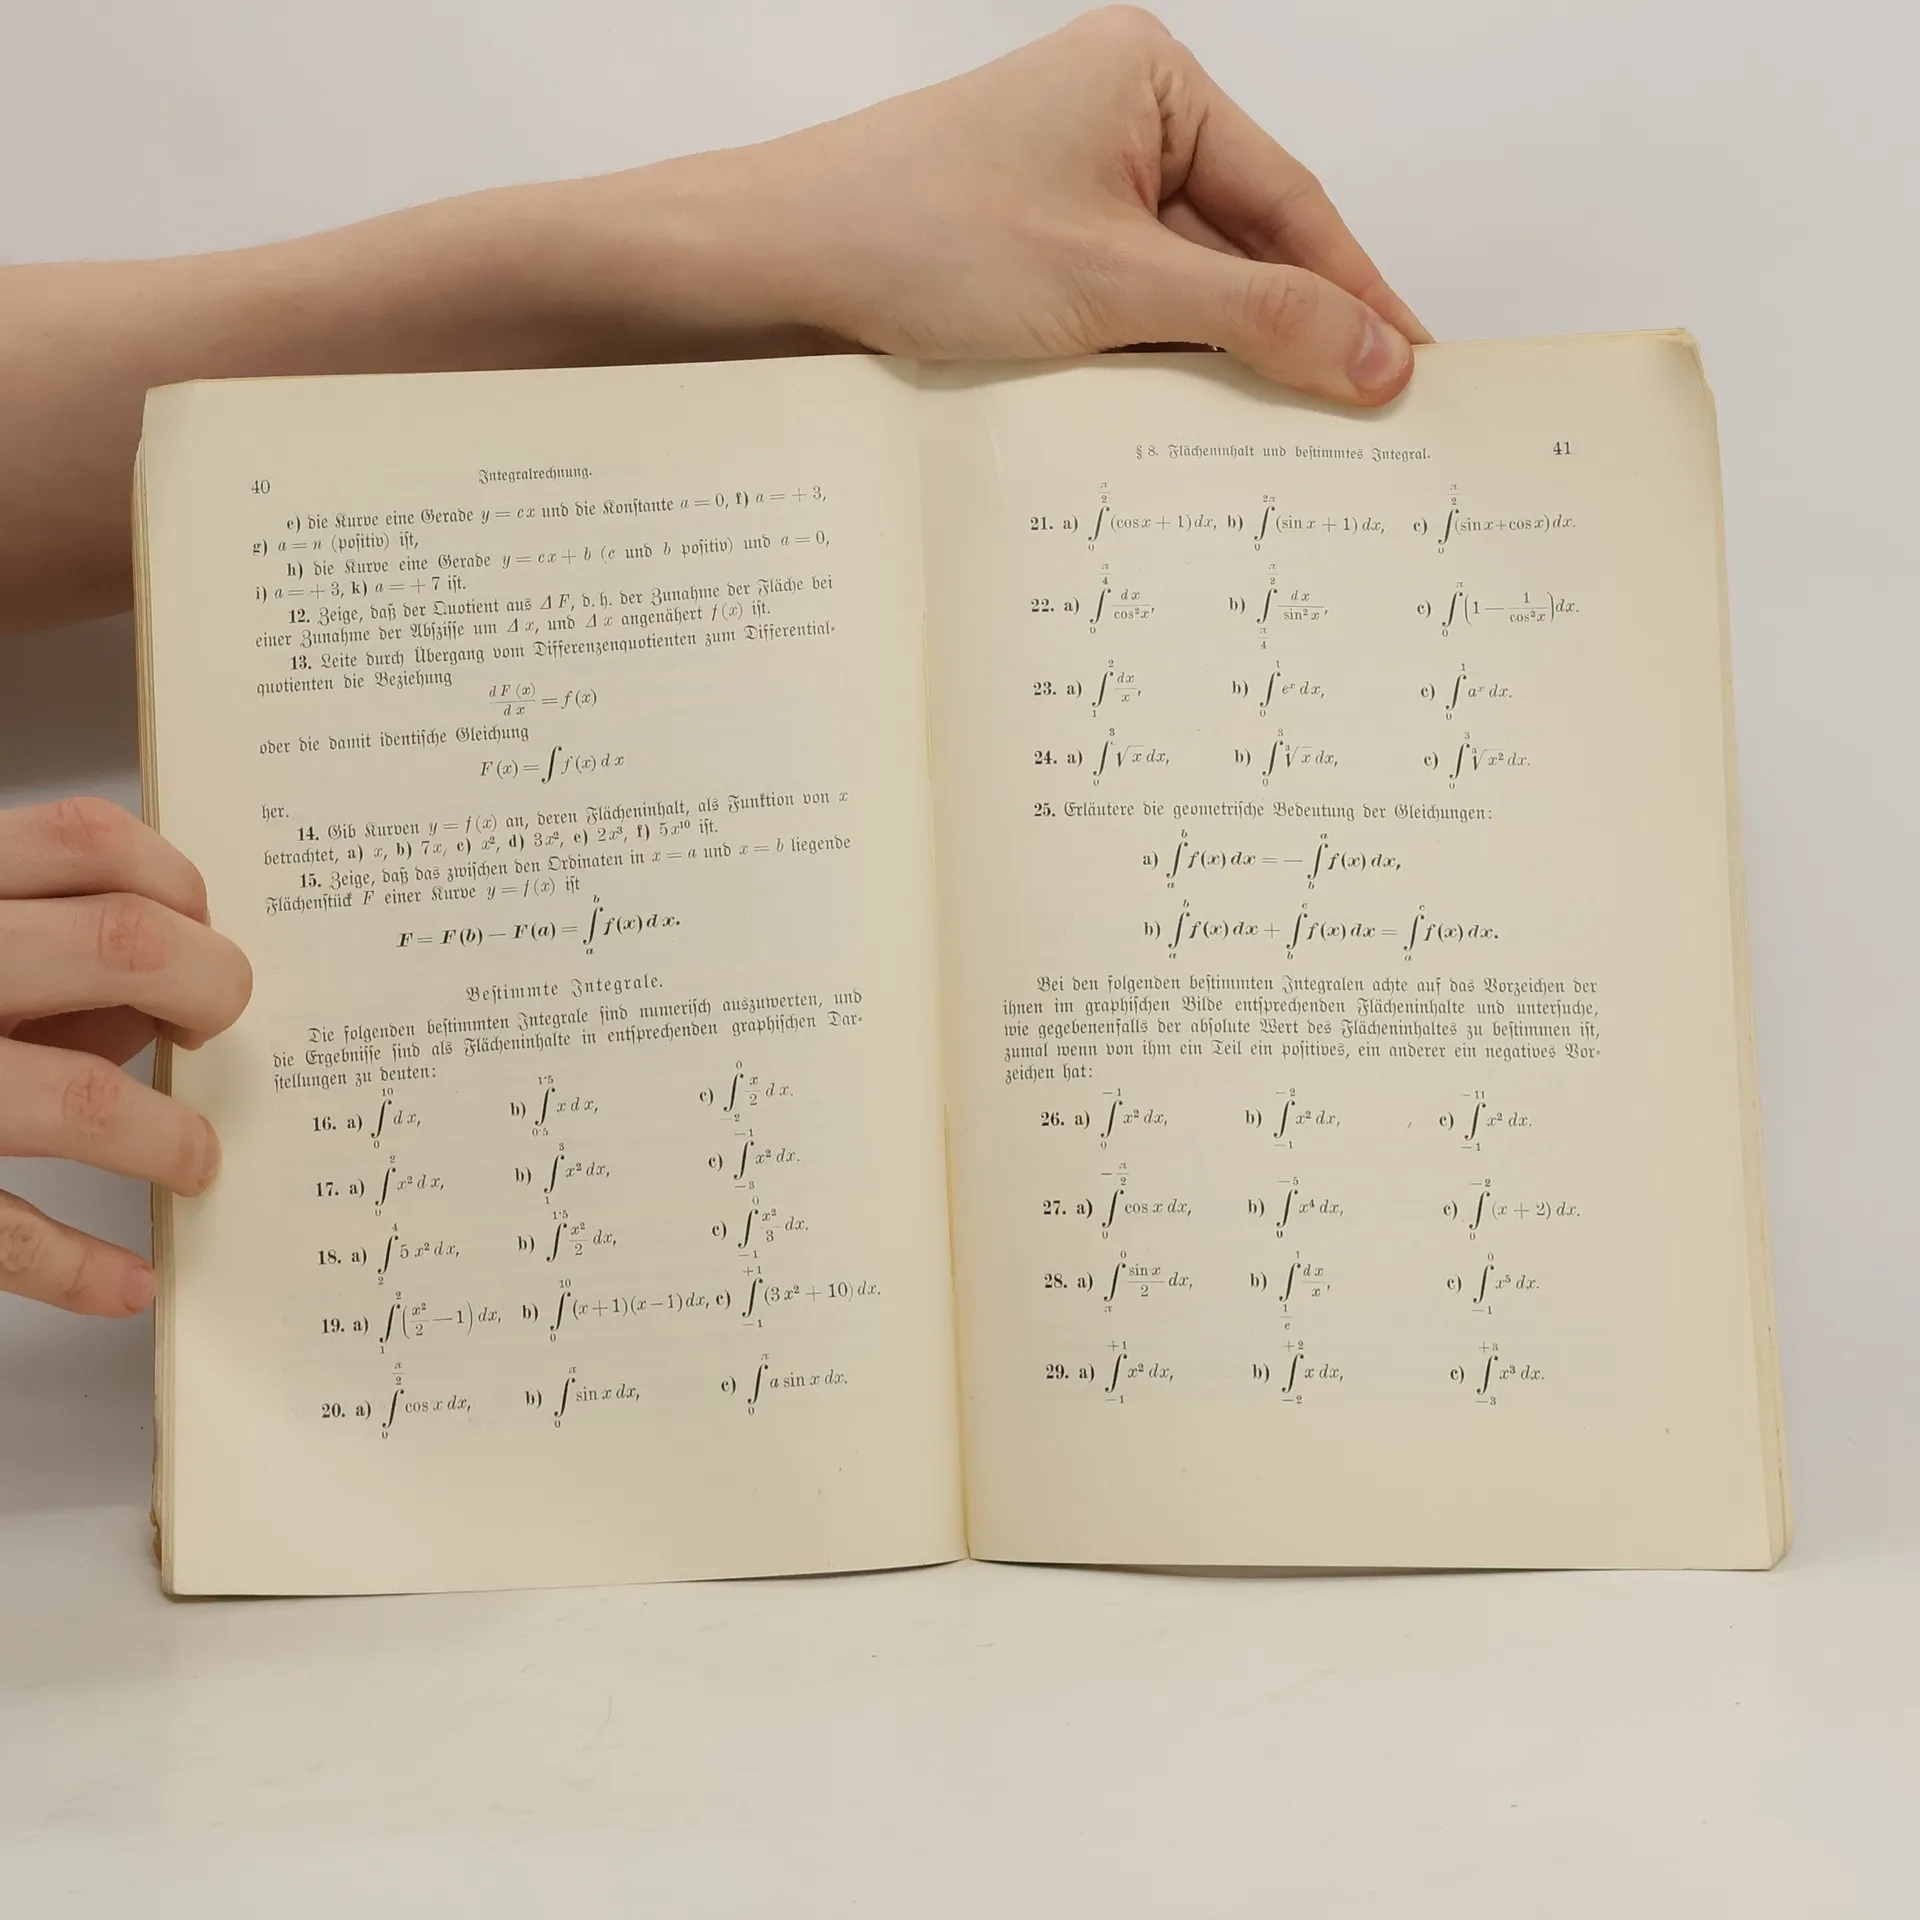 40
Integralrechnung.
e) die Kurve eine Gerade y = cx und die Konstante a = 0, f) a = + 3,
g) a = n (positiv) ist,
h) die Kurve eine Gerade y = cx + b (c und b positiv) und a = 0,
i) a = + 3, k) a = + 7 ist.
12. Zeige, daß der Quotient aus Δ F, d. h. der Zunahme der Fläche bei
einer Zunahme der Abszisse um Δ x, und Δ x angenähert f (x) ist.
13. Leite durch Übergang vom Differenzenquotienten zum Differential-
quotienten die Beziehung
d F (x) / d x = f (x)
oder die damit identische Gleichung
F (x) = ∫ f (x) d x
her.
14. Gib Kurven y = f (x) an, deren Flächeninhalt, als Funktion von x
betrachtet, a) x, b) 7x, c) x², d) 3x², e) 2x³, f) 5x¹⁰ ist.
15. Zeige, daß das zwischen den Ordinaten in x = a und x = b liegende
Flächenstück F einer Kurve y = f (x) ist
F = F(b) − F(a) = ∫_a^b f(x) d x.
Bestimmte Integrale.
Die folgenden bestimmten Integrale sind numerisch auszuwerten, und
die Ergebnisse sind als Flächeninhalte in entsprechenden graphischen Dar-
stellungen zu deuten:
16. a) ∫_0^10 d x, b) ∫_0·5^1·5 x d x, c) ∫_−2^0 x/2 d x.
17. a) ∫_0^2 x² d x, b) ∫_1^3 x² dx, c) ∫_−3^−1 x² dx.
18. a) ∫_2^4 5 x² d x, b) ∫^1·5 x²/2 dx, c) ∫_−1^0 x²/3 dx.
19. a) ∫_1^2 (x²/2 − 1) dx, b) ∫_0^10 (x + 1)(x − 1) dx, c) ∫_−1^+1 (3 x² + 10) dx.
20. a) ∫_0^π/2 cos x dx, b) ∫_0^π sin x dx, c) ∫_0^π a sin x dx.
§ 8. Flächeninhalt und bestimmtes Integral.
41
21. a) ∫_0^π/2 (cos x + 1) dx, b) ∫_0^2π (sin x + 1) dx, c) ∫_0^π/2 (sin x + cos x) dx.
22. a) ∫_0^π/4 dx/cos² x, b) ∫_π/4^π/2 dx/sin² x, c) ∫_0^π (1 − 1/cos² x) dx.
23. a) ∫_1^2 dx/x, b) ∫_0^1 eˣ dx, c) ∫_0^1 aˣ dx.
24. a) ∫_0^3 √x dx, b) ∫_0^3 ³√x dx, c) ∫_0^3 ³√x² dx.
25. Erläutere die geometrische Bedeutung der Gleichungen:
a) ∫_a^b f(x) dx = − ∫_b^a f(x) dx,
b) ∫_a^b f(x) dx + ∫_b^c f(x) dx = ∫_a^c f(x) dx.
Bei den folgenden bestimmten Integralen achte auf das Vorzeichen der
ihnen im graphischen Bilde entsprechenden Flächeninhalte und untersuche,
wie gegebenenfalls der absolute Wert des Flächeninhaltes zu bestimmen ist,
zumal wenn von ihm ein Teil ein positives, ein anderer ein negatives Vor-
zeichen hat:
26. a) ∫_0^−1 x² dx, b) ∫_−1^−2 x² dx, c) ∫_−1^−11 x² dx.
27. a) ∫_0^−π/2 cos x dx, b) ∫_0^−5 x⁴ dx, c) ∫_0^−2 (x + 2) dx.
28. a) ∫_π^0 sin x/2 dx, b) ∫_1/e^1 dx/x, c) ∫_−1^0 x⁵ dx.
29. a) ∫_−1^+1 x² dx, b) ∫_−2^+2 x dx, c) ∫_−3^+3 x³ dx.